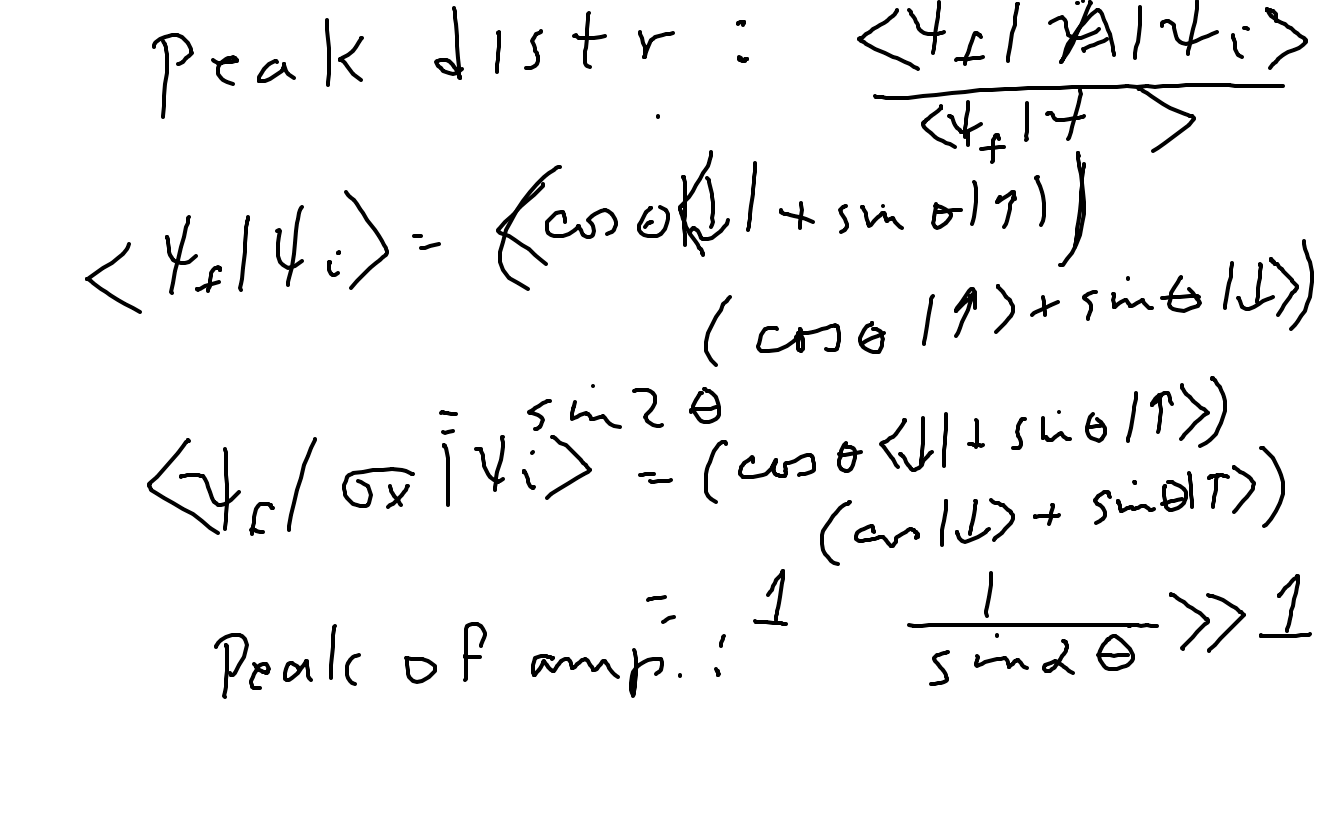 Peak distr : <ψ_f | A | ψ_i> / <ψ_f | ψ >
<ψ_f | ψ_i> = (cos θ <↓| + sin θ |↑|)
(cos θ |↑> + sin θ |↓>)
= sin 2 θ
<ψ_f | σx | ψ_i> = (cos θ <↓| + sin θ |↑>)
(cos |↓> + sin θ |↑>)
= 1
Peak of amp. : 1 / sin 2 θ >> 1